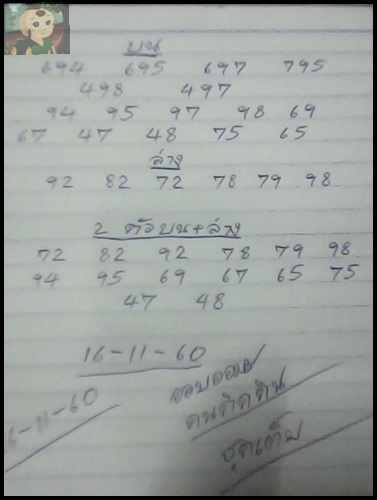 บน
694 695 697 795
498 497
94 95 97 98 69
67 47 48 75 65
ล่าง
92 82 72 78 79 98
2 ตัวบน+ล่าง
72 82 92 78 79 98
94 95 69 67 65 75
47 48
16-11-60
6-11-60
คนติดดิน
ชุดเต็ม